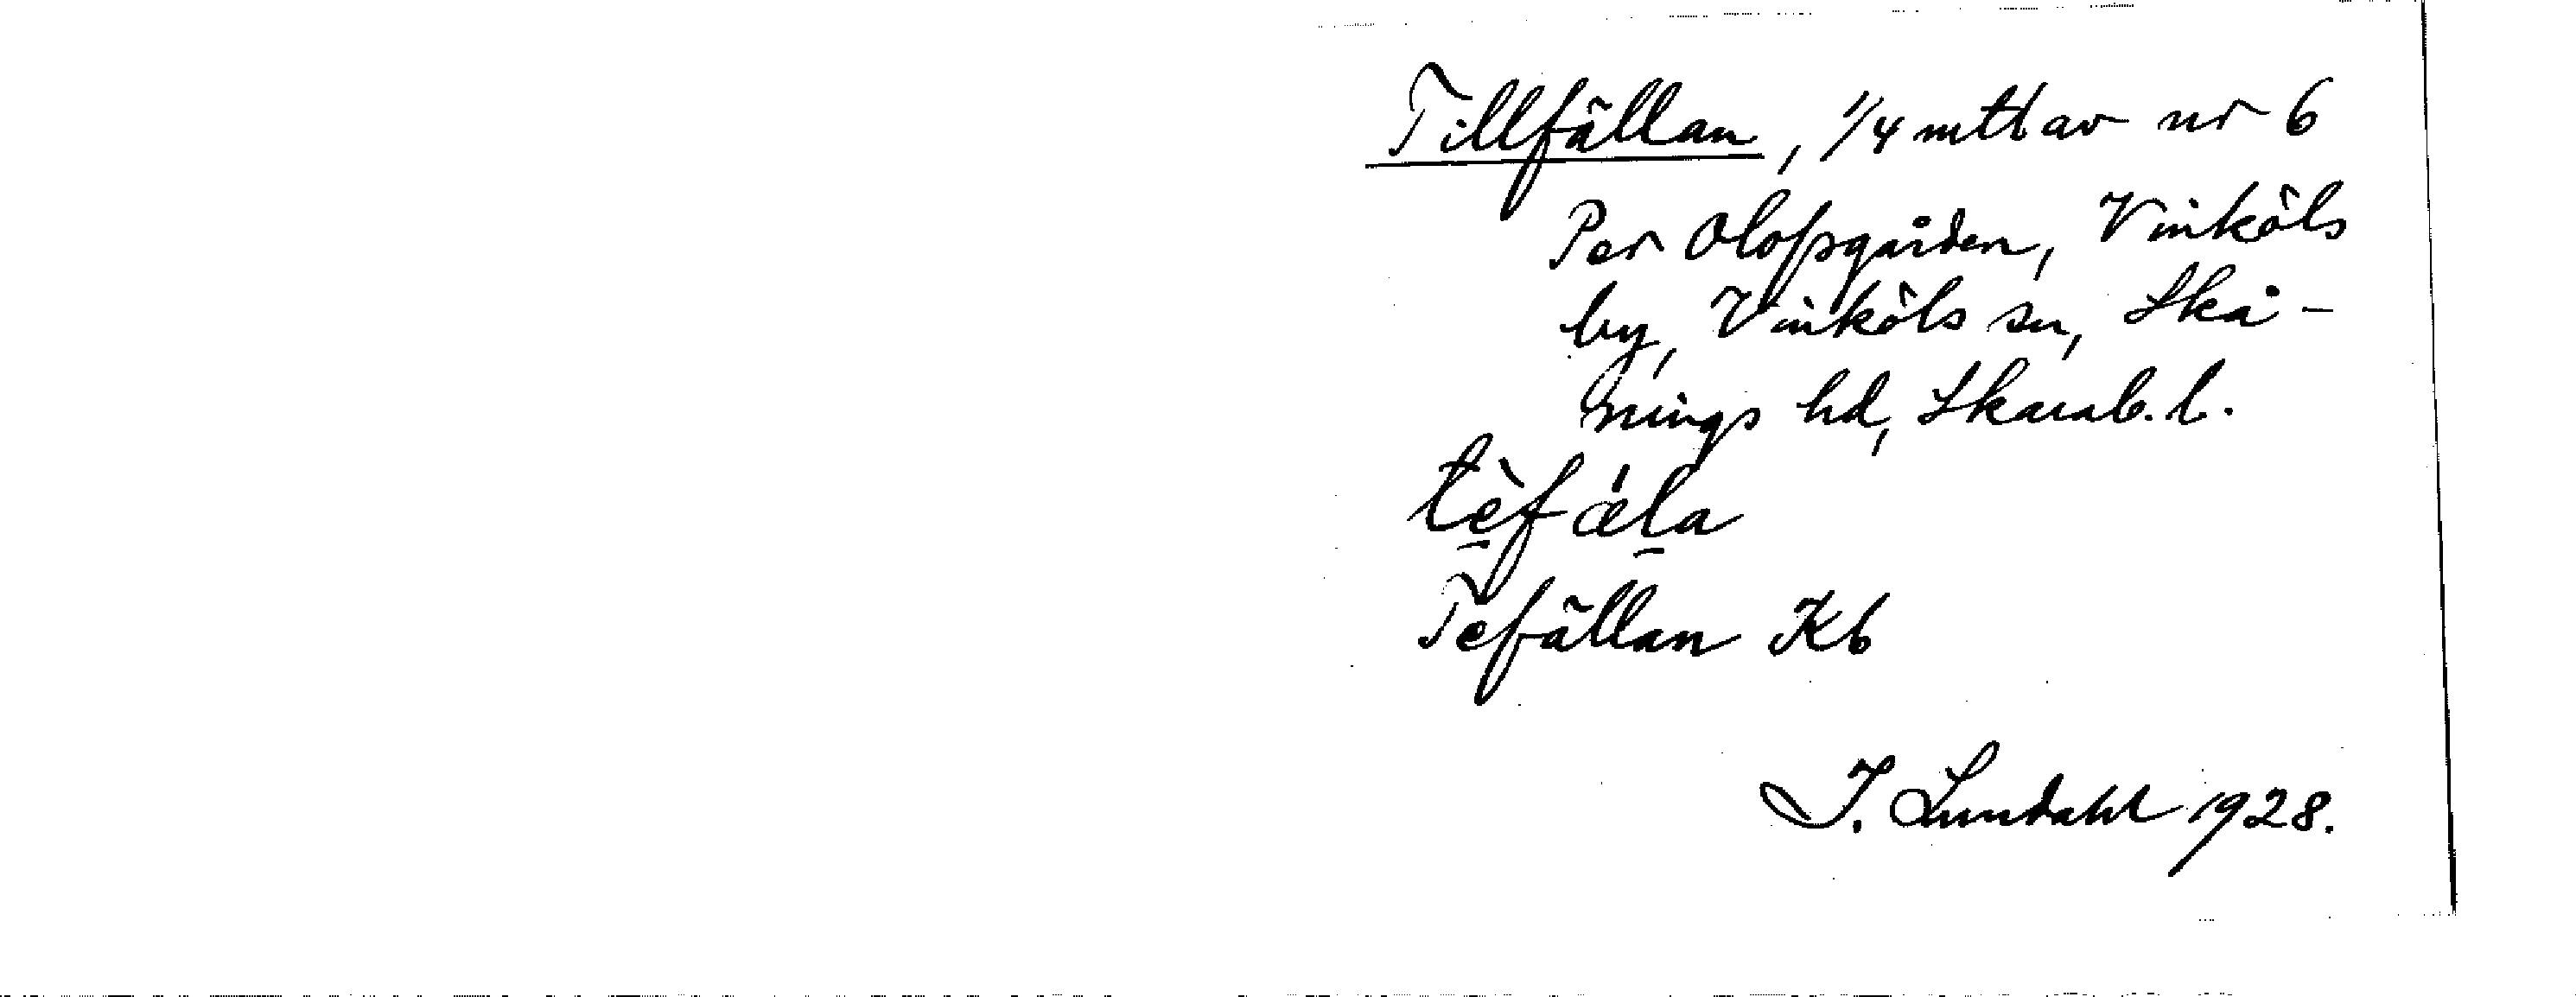 Tillfällan, 1/4 mtl av nr 6
Per Olofsgården, Vinköls
by, Vinköls sn, Skå-
nings hd, Skarab. l.
tè̱fǽḻa
Tefällan Kb
I. Lundahl 1928.